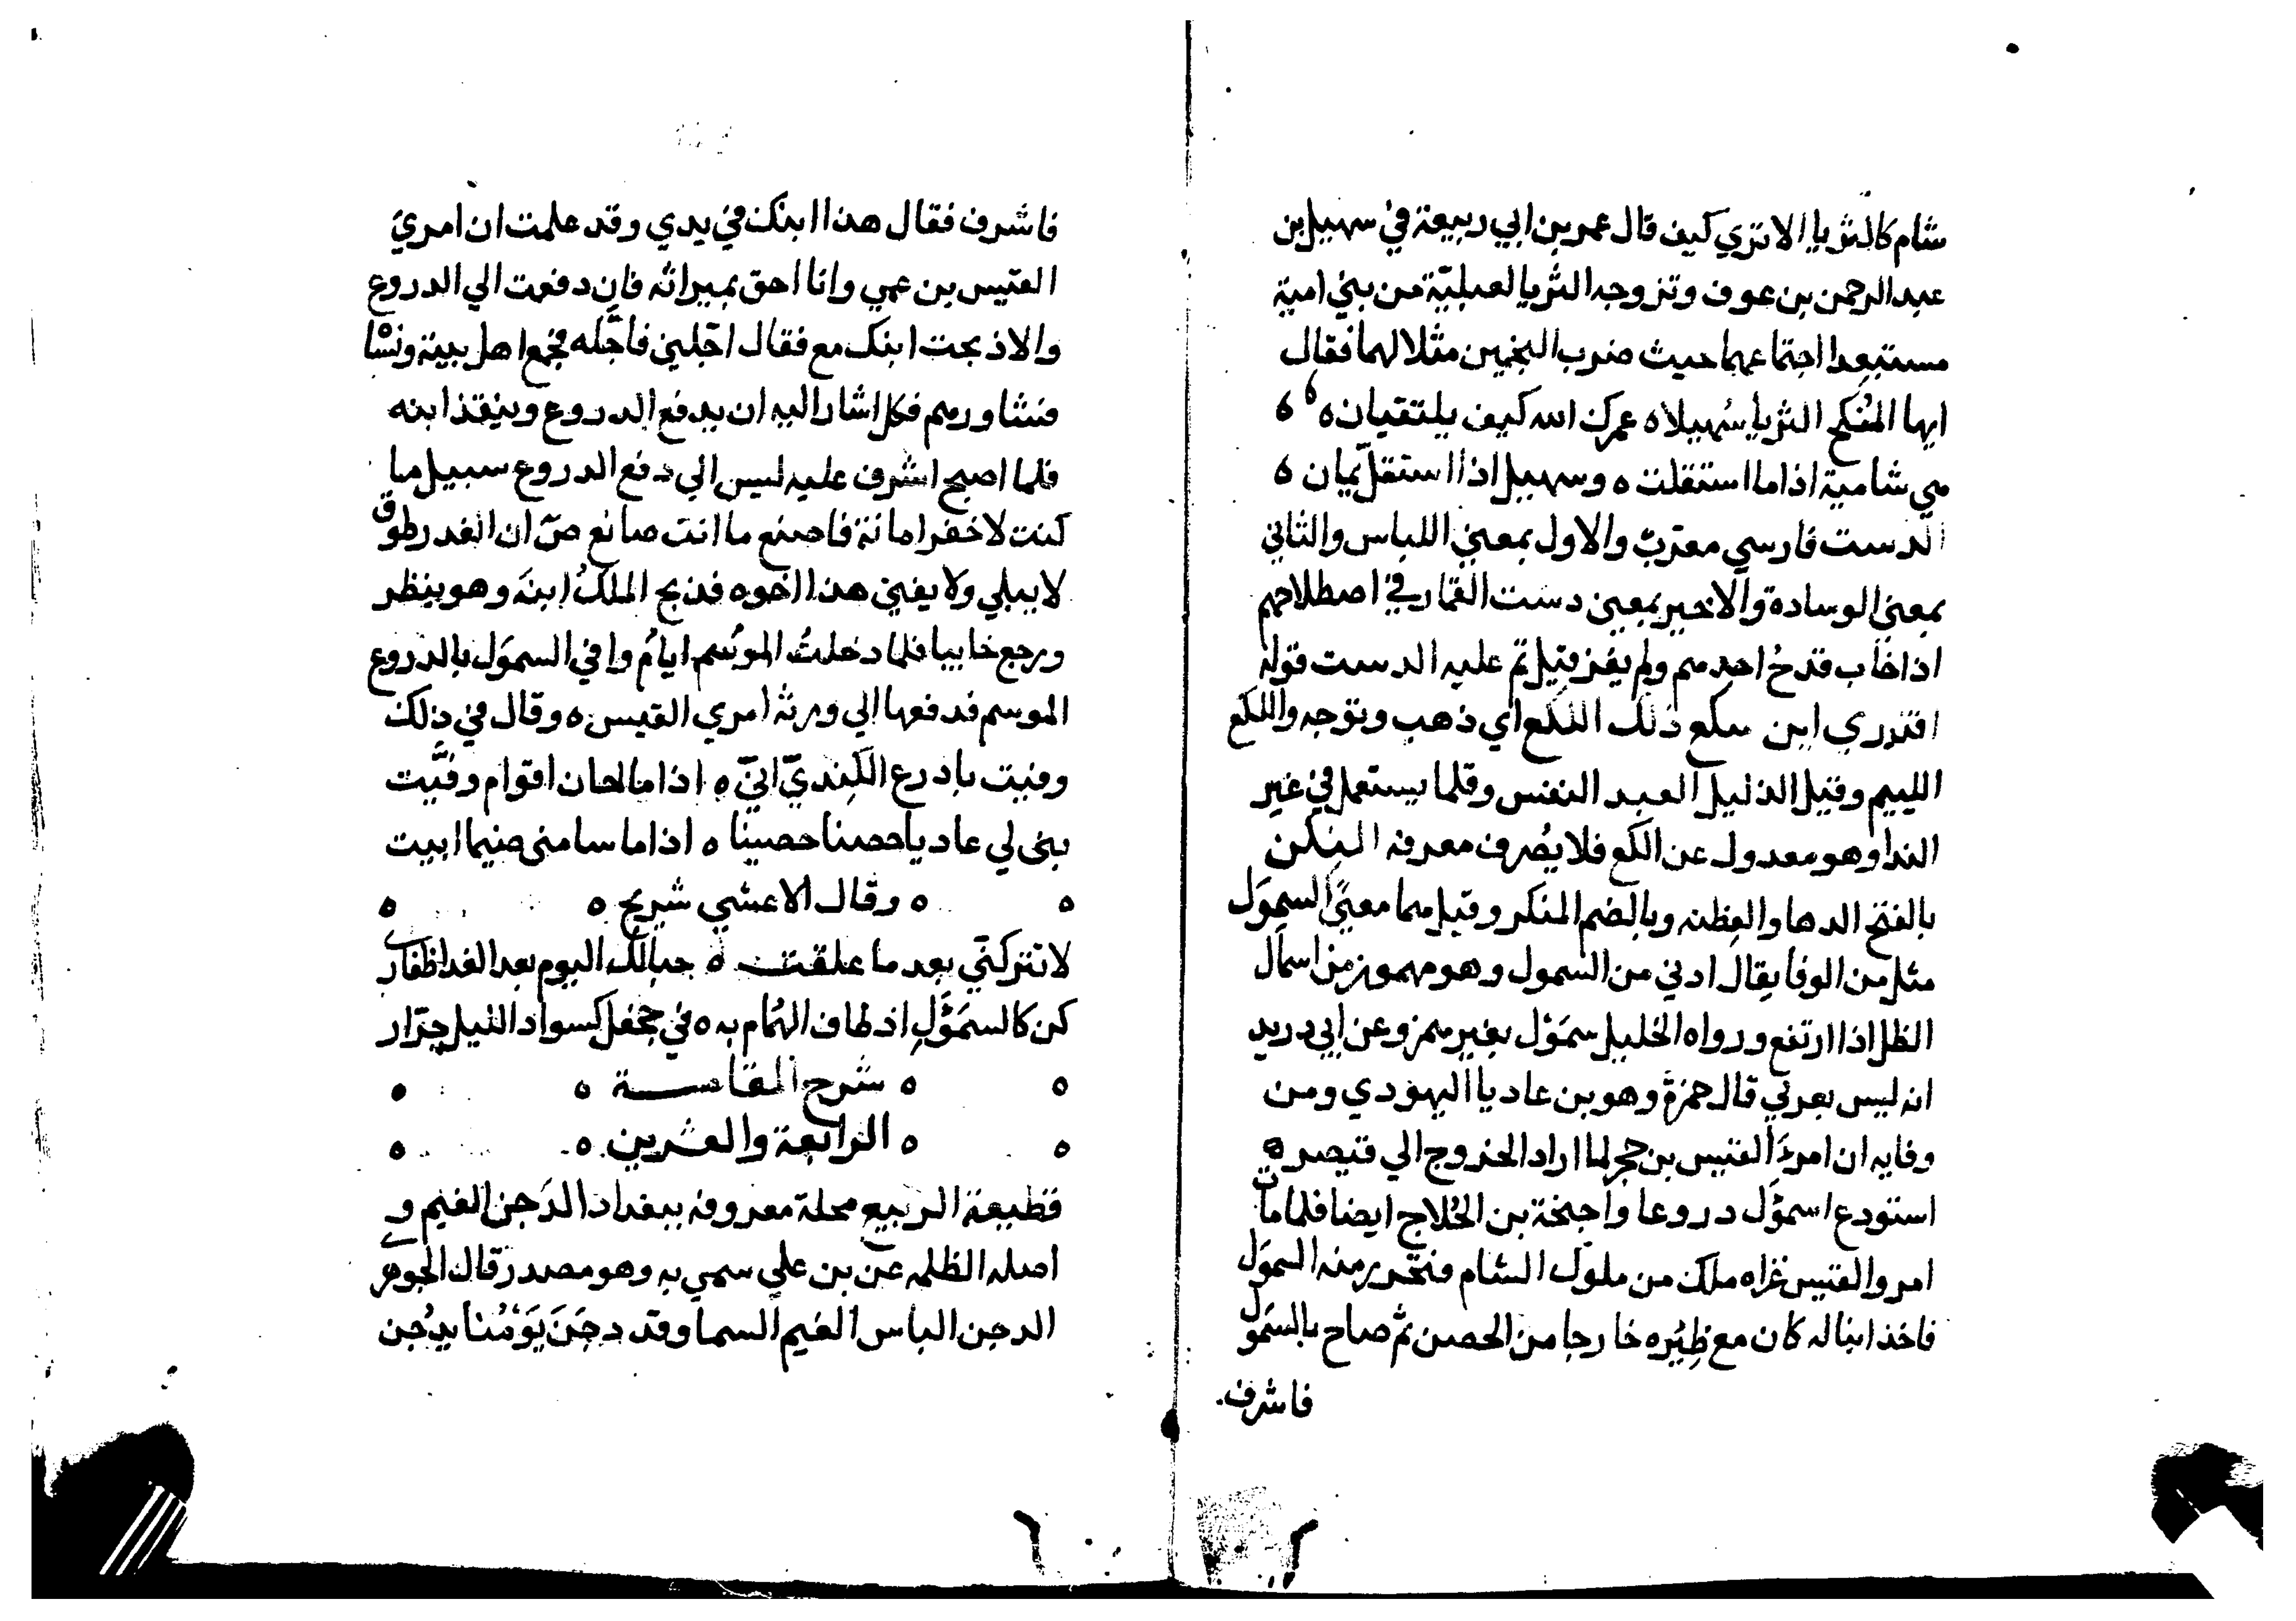 شام كالثريا الا تري كيف قال عمر بن ابي ربيعة في سهيل بن
عبد الرحمن بن عوف وتزوجه الثريا العبليّة من بني امية
مستبعدا اجتماعهما حيث ضرب النجمين مثلا لهما فقال
ايها المُنكح الثريا سُهيلا ه عمرك الله كيف يلتقيان ه
هي شامية اذا ما استقلت ه وسهيل اذا استقل يمان ه
الدست فارسي معرّب والاول بمعني اللباس والثاني
بمعني الوسادة والاخير بمعني دست القمار في اصطلاحهم
اذا خاب قدحُ احدهم ولم يفز قيل تم عليه الدست قوله
افتدري اين سكع ذلك اللكع اي ذهب وتوجه واللكع
اللييم وقيل الذليل العبد النفس وقلما يستعمل في غير
الندا وهو معدول عن الكع فلا يُصرف معرفه النكر
بالفتح الدها والفطنه وبالضم المنكر وقيل هما معنيً السموَل
مثل من الوفا يقال ادني من السمول وهو مهموز من اسمال
الظل اذا ارتفع ورواه الخليل سموَل بغير همز وعن ابي دريد
انه ليس بعربي قال حمزة وهو بن عاديا اليهودي ومن
وفايه ان امرءَ القيس بن حجر لما اراد الخروج الي قيصر ه
استودع اسموَل دروعا واجنحة بن الخلاج ايضا فلما مات
امرو القيس غزاه ملك من ملوك الشام فتحرر منه السموَل
فاخذ ابنا له كان مع ظِئره خارجا من الحصن ثم صاح بالسمَول
فاشرف
فاشرف فقال هذا ابنك في يدي وقد علمت ان امريَ
القيس بن عمي وانا احق بميراثه فان دفعت الي الدروع
والا ذبحت ابنك مع فقال اجّلني فاجّله فجمع اهل بيته ونسا
فتشاورهم فكل اشار اليه ان يدفع الدروع وينقذ ابنه
فلما اصبح اشرف عليه ليس الي دفع الدروع سبيل ما
كنت لاخفر امانة فاصنع ما انت صانع صّ ان الغدر طوق
لا يبلي ولا يفني هذا اخوه فذبح الملكُ ابنهَ وهو ينظر
ورجع خايبا فلما دخلتُ الموسم ايامُ وافي السموَل بالدروع
الموسم فدفعها الي ورثة امري القيس ه وقال في ذلك
وفيت بادرع الكنديّ انيّ ه اذا ما لحان اقوام وفَيّت
بنى لي عاديا حصنا حصينا ه اذا ما سامنى ضيما ابيت
ه ه وقال الاعشي شريح ه ه
لا تتركنّي بعد ما علقت ه حبالك اليوم بعد الغد اظفاري
كن كالسمَؤَلِ اذ طاف الهُمام به ه في جحفل كسواد الليل جرّار
ه ه شرح المقامــــة ه ه
ه ه الرابعة والعشرين ه ه
قطيعة الربيع محلة معروفه ببغداد الدَجن الغيم و
اصله الظلمه عن بن علي سمي به وهو مصدر قال الجوهري
الدجن الباس الغيم السما وقد دجَنَ يَوْمُنا يدْجن